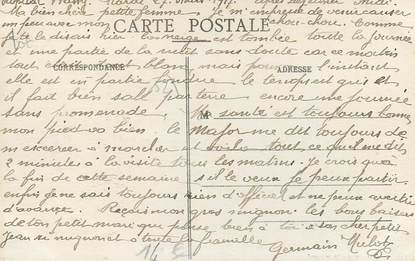 Mardi 27 Mars 1917. après
Ma bien chère petite femme je m'empresse de venir causer
un peu avec mon chou-chou. Comme
CARTE POSTALE
je te le disais hier la neige est tombée toute la journée
et une partie de la nuit sans doute car ce matin
tout était blanc mais pour l'instant
CORRESPONDANCE
ADRESSE
elle est en partie fondue le temps est gris et
il fait bien sale par terre encore une journée
sans promenade. Ma santé est toujours bonne
M
mon pied va bien. le Major me dit toujours de
m'exercer à marcher et voilà tout ce qu'il me dit
2 minutes à la visite tous les matins. je crois qu'à
la fin de cette semaine s'il le veux je peux partir
enfin je ne sais toujours rien d'officiel et ne peux avertir
d'avance. Reçois mon gros mignon les bons baisers
de ton petit mari qui pense bien à toi et à ton cher petit
Jean si mignon et à toute la famille
Germain Mulot